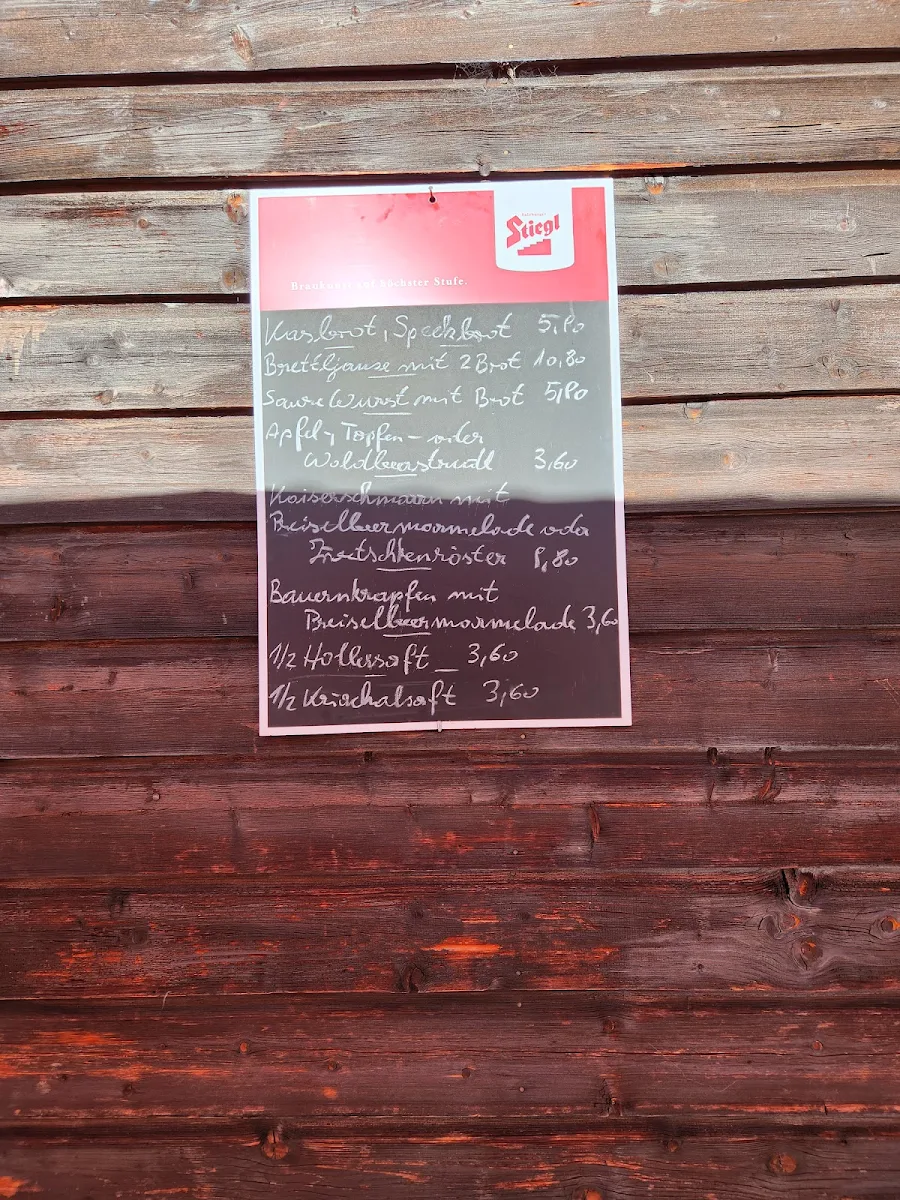 Stiegl
Braukunst auf höchster Stufe.
Kasbrot, Speckbrot 5,80
Brettljause mit 2 Brot 10,80
Saure Wurst mit Brot 5,80
Apfel, Topfen- oder
Waldbeerstrudl 3,60
Kaiserschmarrn mit
Preiselbeermarmelade oder
Zwetschkenröster 8,80
Bauernkrapfen mit
Preiselbeermarmelade 3,60
1/2 Hollersaft _ 3,60
1/2 Kriachalsaft 3,60